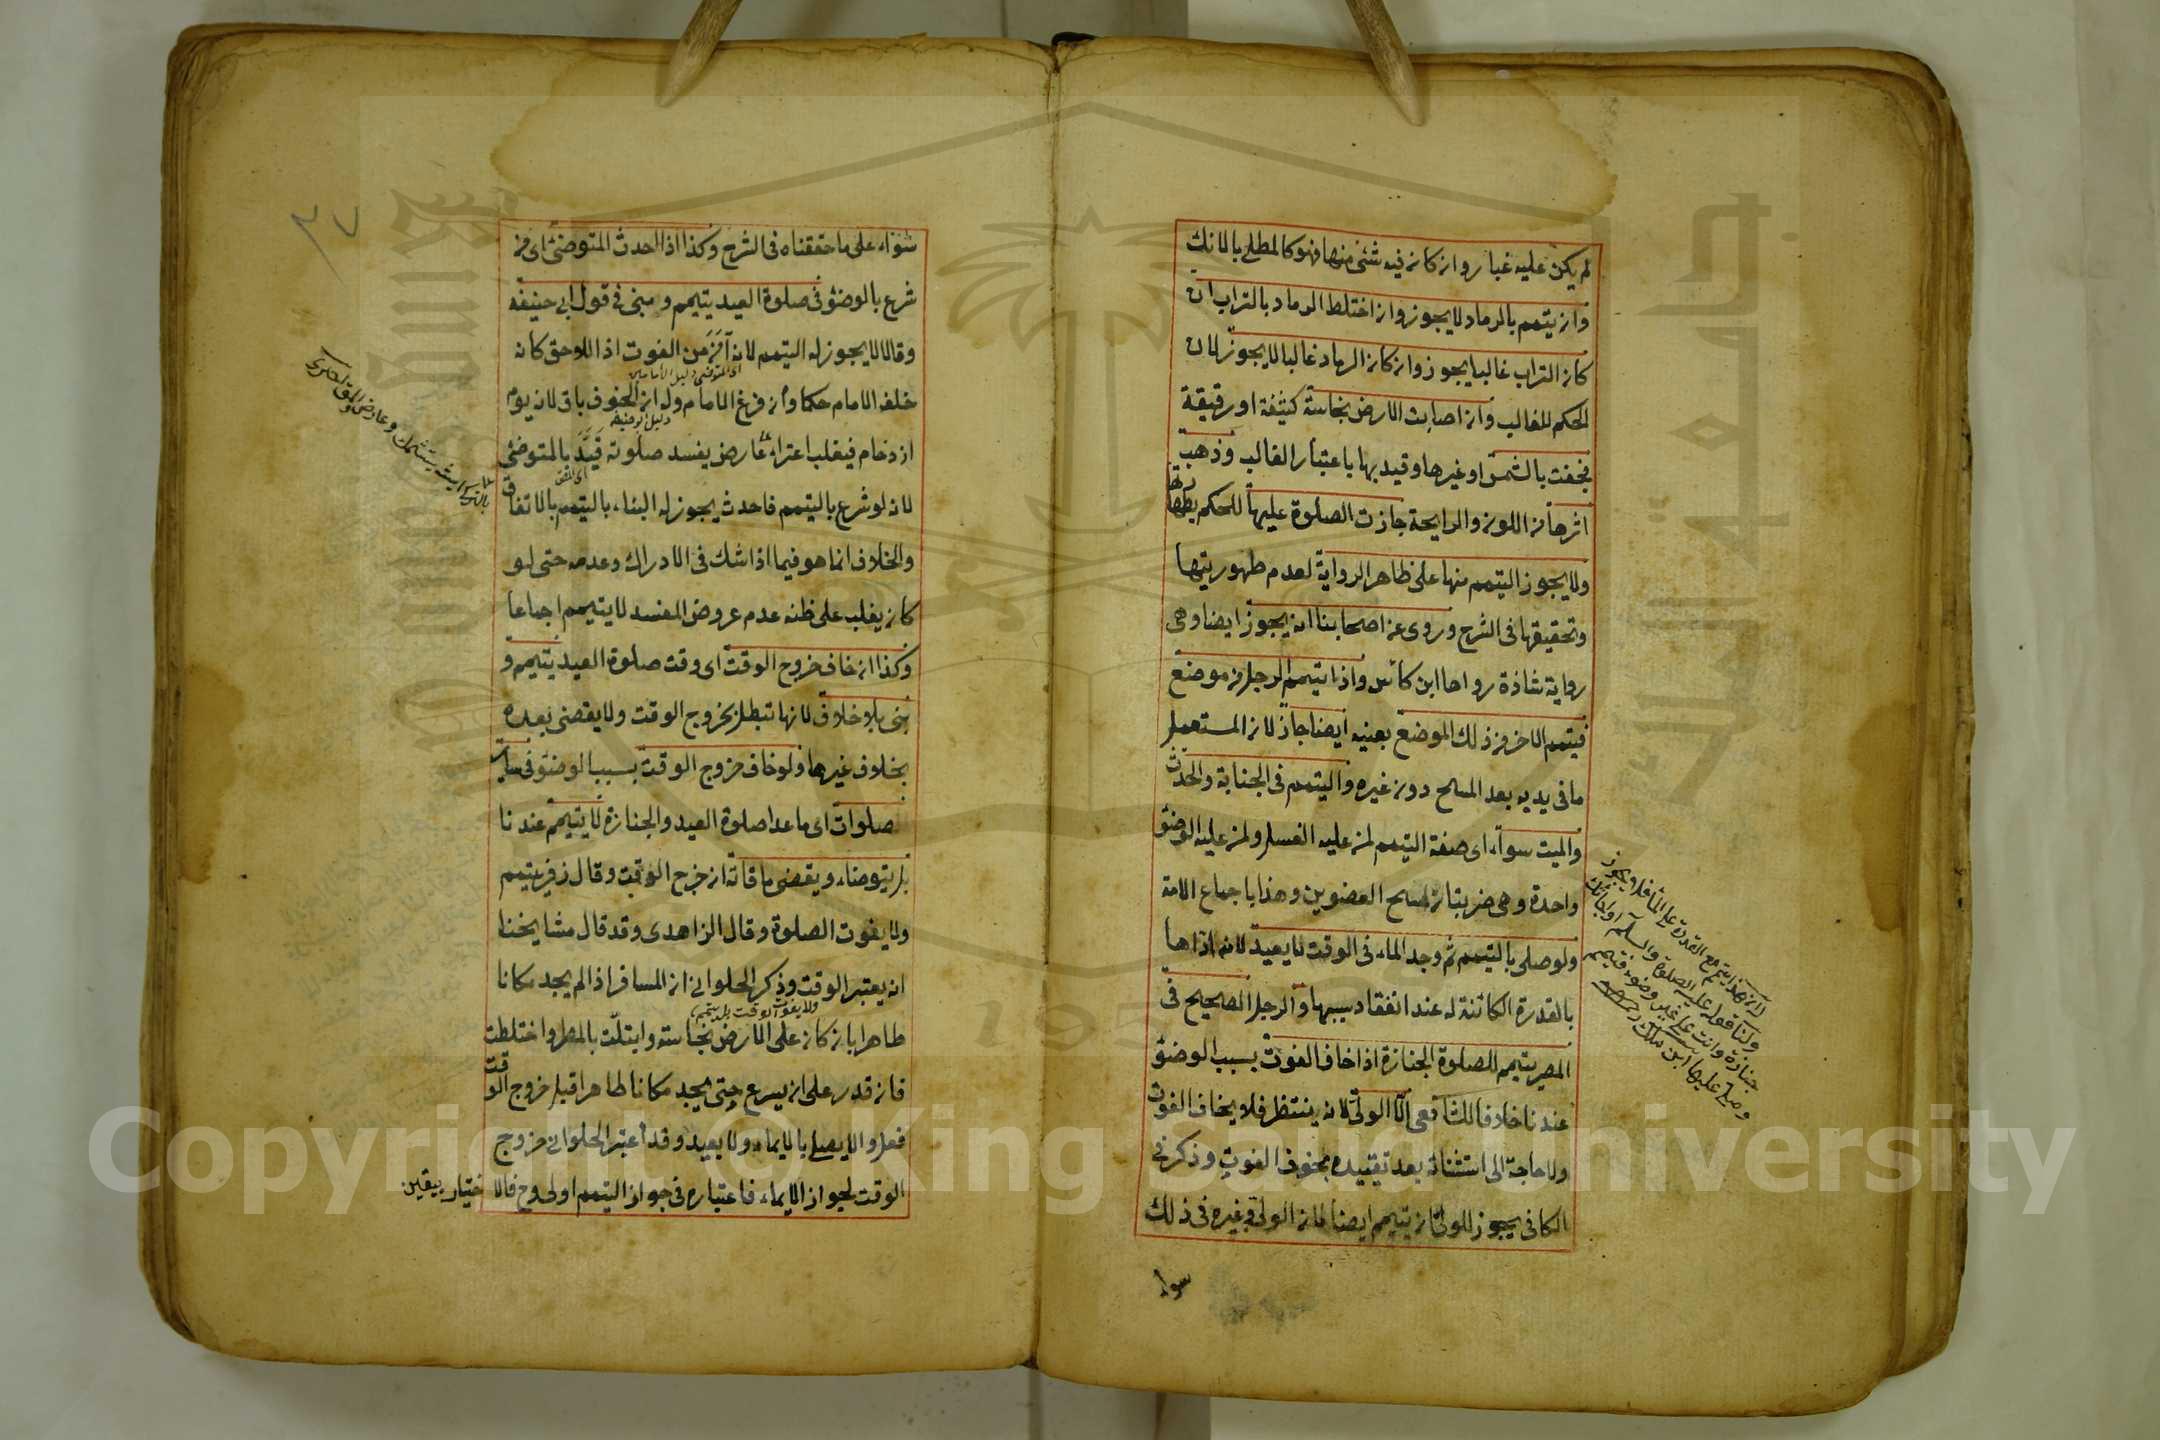 لم يكن عليه غبار وان كان فيه شئ منها فهو كالمطلى بالانك
وان يتيمم بالرماد لا يجوز وان اختلط الرماد بالتراب ان
كان التراب غالبا يجوز وان كان الرماد غالبا لا يجوز لان
الحكم للغالب وان اصابت الارض نجاسة كثيفة او رقيقة
فجفت بالشمس او غيرها وقيد بها باعتبار الغالب وذهب
اثرها من اللون والرايحة جازت الصلوة عليها للحكم بطهارتها
ولا يجوز التيمم منها على ظاهر الرواية لعدم طهوريتها
وتحقيقها فى الشرح وروى عن اصحابنا انه يجوز ايضا وهى
رواية شاذة رواها ابن كاس واذا تيمم الرجل من موضع
فيتمم الاخر من ذلك الموضع بعينه ايضا جاز لان المستعمل
ما فى يديه بعد المسح دون غيره والتيمم فى الجنابة والحدث
والميت سواء اى صفة التيمم لمن عليه الغسل ولمن عليه الوضؤ
واحدة وهى ضربتان لمسح العضوين وهذا باجماع الامة
ولو صلى بالتيمم ثم وجد الماء فى الوقت لا يعيد لانه اداها
بالقدرة الكائنة له عند انعقاد سببها والرجل الصحيح فى
المصر يتيمم للصلوة الجنازة اذا خاف الفوت بسبب الوضؤ
عندنا خلافا للشافعى الا الولى لانه ينتظر فلا يخاف الفوت
ولا حاجة الى استثنائه بعد تقييده بخوف الفوت وذكر فى
الكافى يجوز للولى ان يتيمم ايضا لان الولى وغيره فى ذلك
سوا
ولنا قوله عليه الصلوة والسلم اذا
جنازة وانت على غير وضوء فتيمم
وصل عليها ابن ملك رحمه
٣٧
سواء على ما حققناه فى الشرح وكذا اذا احدث المتوضئ اى من
شرع بالوضؤ فى صلوة العيد يتيمم ويبنى فى قول ابى حنيفة
وقالا لا يجوز له التيمم لانه آمن من الفوت اذ اللاحق كانه
اى المتوضى دليل الأمامين
خلف الامام حكما وان فرغ الامام وله ان الخوف باق لانه يوم
دليل ابو حنيفه
ازدحام فيغلب اعتراء عارض يفسد صلوته قيد بالمتوضئ
لانه لو شرع بالتيمم فاحدث يجوز له البناء بالتيمم بالاتفاق
والخلاف انما هو فيما اذا شك فى الادراك وعدمه حتى لو
كان يغلب على ظنه عدم عروض المفسد لا يتيمم اجماعا
وكذا ان خاف خروج الوقت اى وقت صلوة العيد يتيمم و
يبنى بلا خلاف لانها تبطل بخروج الوقت ولا يقضى بعده
بخلاف غيرها ولو خاف خروج الوقت بسبب الوضؤ فى سائر
صلوات اى ما عدا صلوة العيد والجنازة لا يتيمم عندنا
بل يتوضاء ويقضى ما فاته ان خرج الوقت وقال زفر يتيمم
ولا يفوت الصلوة وقال الزاهدى وقد قال مشايخنا
انه يعتبر الوقت وذكر الحلوانى ان المسافر اذا لم يجد مكانا
ولا يفوت الوقت بل يتيمم
طاهرا بان كان على الارض نجاسة وابتلت بالمطر واختلطت
فان قدر على ان يسرع حتى يجد مكانا طاهرا قبل خروج الوقت
فعل والا يصلى بالايماء ولا يعيد وقد اعتبر الحلوانى خروج
الوقت لجواز الايماء فاعتباره فى جواز التيمم اولى وح فالا
ختيار بيقين